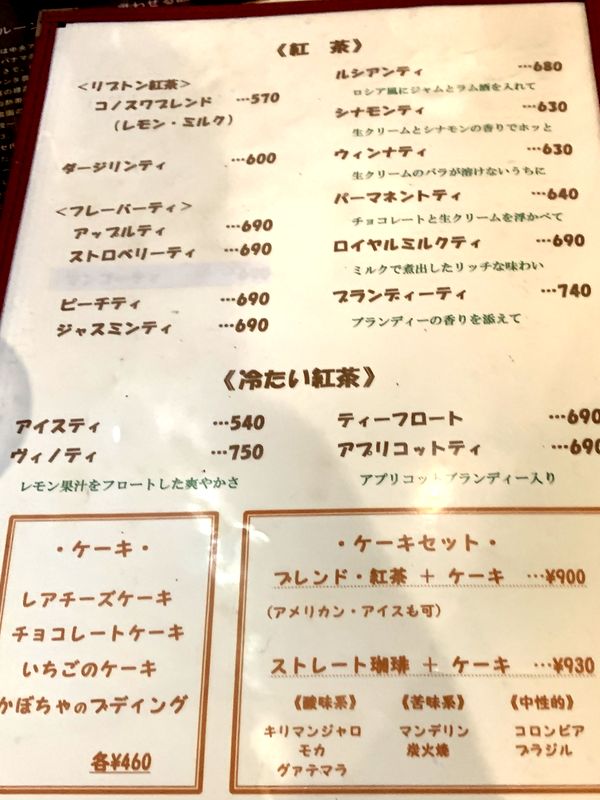 《紅 茶》
<リプトン紅茶>
コノスワブレンド …570
(レモン・ミルク)
ダージリンティ …600
<フレーバーティ>
アップルティ …690
ストロベリーティ …690
ピーチティ …690
ジャスミンティ …690
ルシアンティ …680
ロシア風にジャムとラム酒を入れて
シナモンティ …630
生クリームとシナモンの香りでホッと
ウィンナティ …630
生クリームのバラが溶けないうちに
パーマネントティ …640
チョコレートと生クリームを浮かべて
ロイヤルミルクティ …690
ミルクで煮出したリッチな味わい
ブランディーティ …740
ブランディーの香りを添えて
《冷たい紅茶》
アイスティ …540
ヴィノティ …750
レモン果汁をフロートした爽やかさ
ティーフロート …690
アプリコットティ …690
アプリコットブランディー入り
・ケーキ・
レアチーズケーキ
チョコレートケーキ
いちごのケーキ
かぼちゃのプディング
各¥460
・ケーキセット・
ブレンド・紅茶 + ケーキ …¥900
(アメリカン・アイスも可)
ストレート珈琲 + ケーキ …¥930
《酸味系》
キリマンジャロ
モカ
グァテマラ
《苦味系》
マンデリン
炭火焼
《中性的》
コロンビア
ブラジル